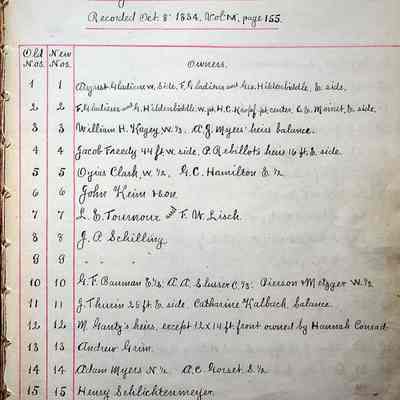 Recorded Oct. 8" 1834, Vol. "M", page 155.
Old Nos. New Nos. Owners.
1 1 August Gladieux W. side, F. Gladieux and Geo. Hiltenbiddle, E. side.
2 2 F. Gladieux and G. Hiltenbiddle, W. pt. H.C. Knopf, pt. center, C.E. Moinet, E. side.
3 3 William H. Kagey, W. 1/2, A. J. Myers' heirs balance.
4 4 Jacob Freedy 44 ft W. side, P. Rebillots heirs 16 ft E. side.
5 5 Cyrus Clark, W. 1/2, G. C. Hamilton E. 1/2
6 6 John Keim & son.
7 7 L. E. Tournour and F. W. Lisch.
8 8 J. A. Schilling
9 9 " " "
10 10 G. F. Bauman E 1/3; A. A. Slusser C. 1/3; Pierson & Metzger W. 1/3
11 11 J. Thurin 25 ft E side Catharine Kalbach, balance.
12 12 M. Gantz's heirs, except 12 x 14 ft. front owned by Hannah Conrad
13 13 Andrew Grim.
14 14 Adam Myers N. 1/2 A. C. Gorset. S. 1/2
15 15 Henry Schlichtenmeyer.